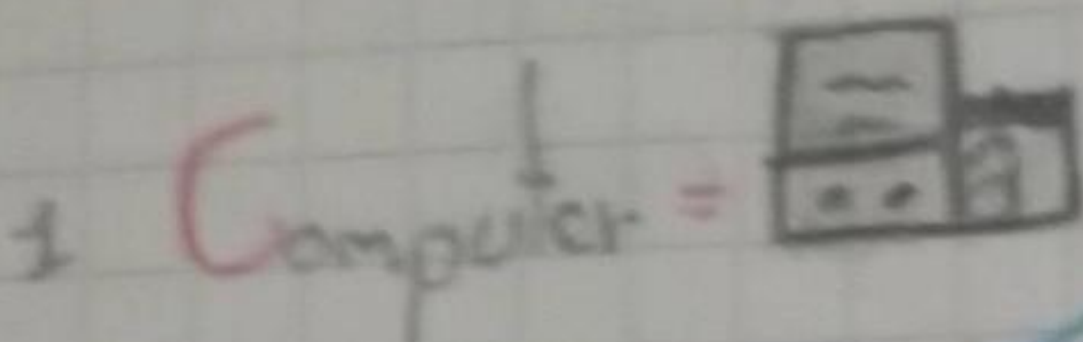 1 Computer =